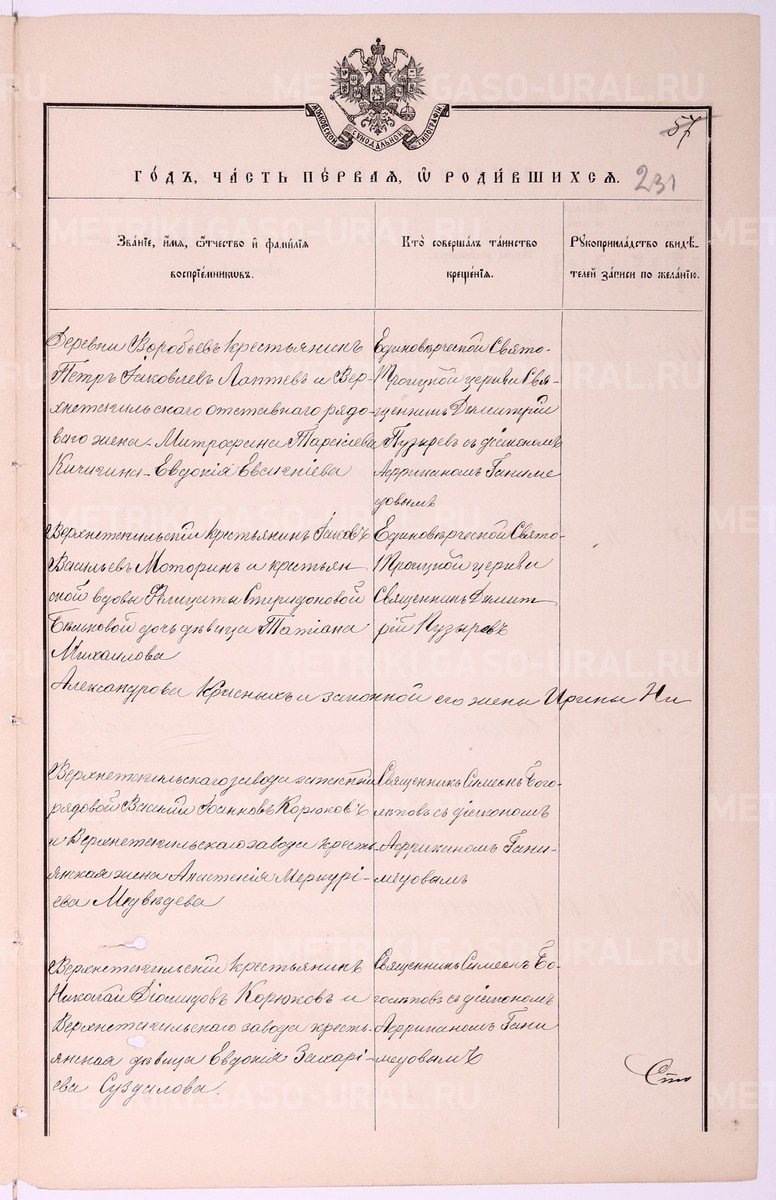 МОСКОВСКОЙ СУНОДАЛЬНОЙ ТИПОГРАФІИ
57
231
ГО́ДЪ, ЧА́СТЬ ПЕ́РВАЯ, Ѿ РОДИ́ВШИХСЯ.
Зва́ніе, и҆́мя, ѻ҆́тчество и҆ фами́лія
воспріе́мниковъ.
Кто̀ соверша́лъ та́инство
креще́нія.
Рꙋкоприкла́дство свидѣ́-
телей за́писи по жела́нію.
Деревни Воробьевъ крестьянинъ
Петръ Іаковлевъ Лаптевъ и Вер-
хнетагильскаго отставнаго рядо-
ваго жена Митрофана Тарасіева
Кичигина Евдокія Евсигніева
Единовѣрческой Свято-
Троицкой церкви Свя-
щенникъ Димитрій
Пузыревъ съ діакономъ
Африканомъ Ганиме
довымъ
Верхнетагильскій крестьянинъ Іаковъ
Васильевъ Моторинъ и крестьян-
ской вдовы Фелицаты Спиридоновой
Бѣльковой дочь дѣвица Татіана
Михаилова
Единовѣрческой Свято-
Троицкой церкви
Священникъ Димит-
рій Пузыревъ
Александрова Красныхъ и законной его жены Ирины Ни
Верхнетагильскаго завода
рядовой Василій Іоанновъ Корюковъ
и Верхнетагильскаго завода кресть-
янская жена Анастасія Меркурі-
ева Медвѣдева
Священникъ Симеонъ Бого-
лѣповъ съ діакономъ
Африканомъ Гани-
медовымъ
Верхнетагильскій крестьянинъ
Николай Діомидовъ Корюковъ и
Верхнетагильскаго завода кресть-
янская дѣвица Евдокія Захарі-
ева Суздалова.
Священникъ Симеонъ Бо-
голѣповъ съ діакономъ
Африканомъ Гани
медовымъ
METRIKI.GASO-URAL.RU